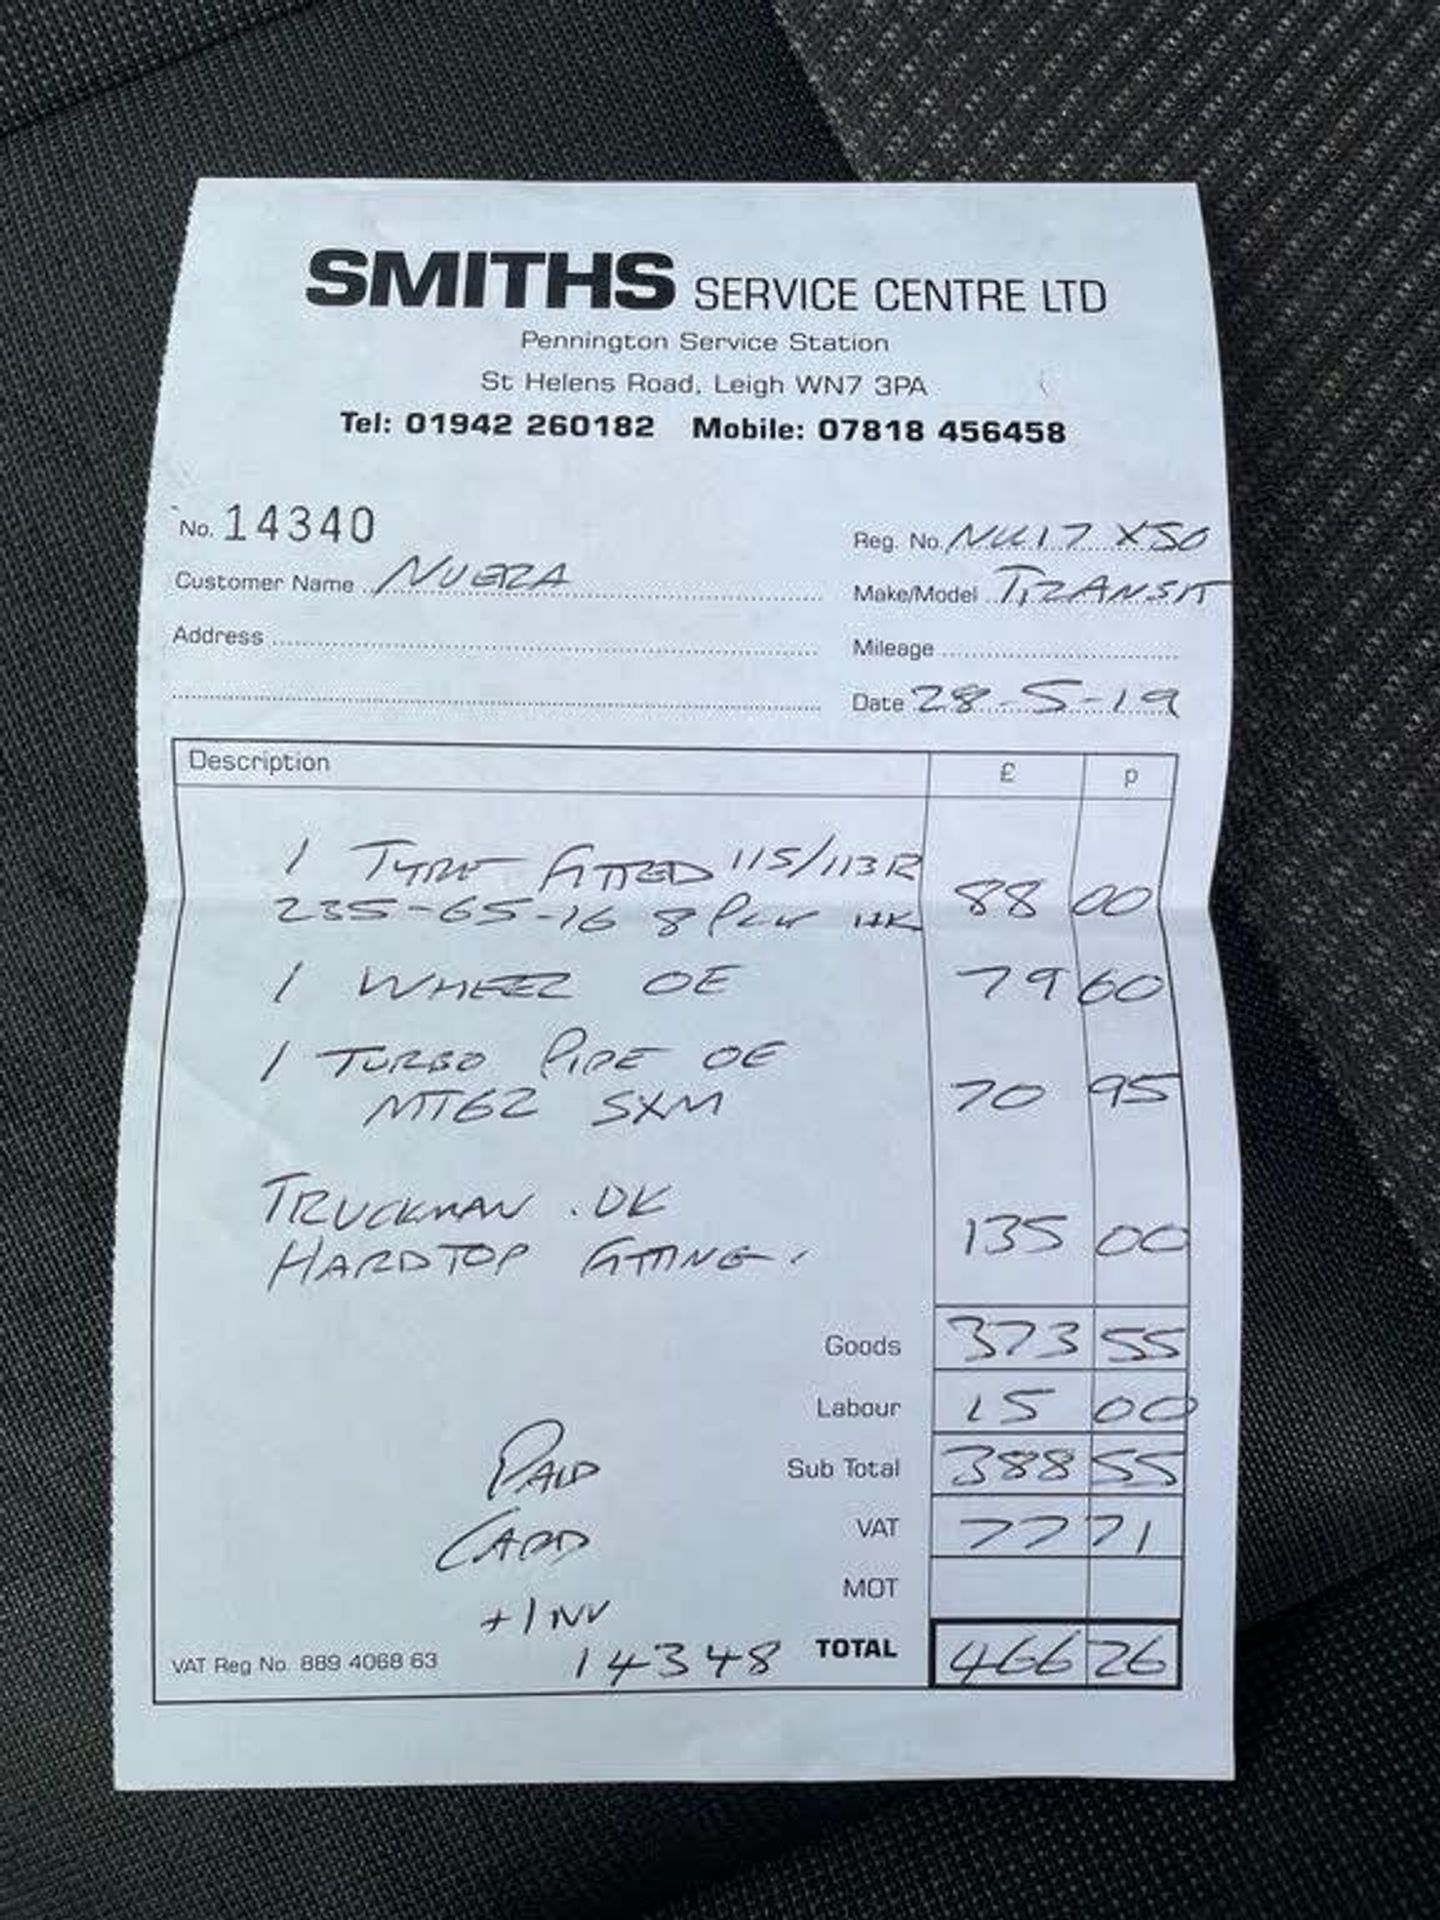 SMITHS SERVICE CENTRE LTD
Pennington Service Station
St Helens Road, Leigh WN7 3PA
Tel: 01942 260182 Mobile: 07818 456458
No. 14340
Reg. No. NU17 XSO
Customer Name NUERA
Make/Model TRANSIT
Address
Mileage
Date 28-5-19
Description £ p
1 TYRE FITTED 115/113R
235-65-16 8 PLY 88 00
1 WHEEL OE 79 60
1 TURBO PIPE OE
MT62 SXM 70 95
TRUCKMAN . UK
HARDTOP FITTING. 135 00
Goods 373 55
Labour 15 00
Sub Total 388 55
PAID
VAT 77 71
CARD
MOT
+ INV
14348
TOTAL 466 26
VAT Reg No. 889 4068 63